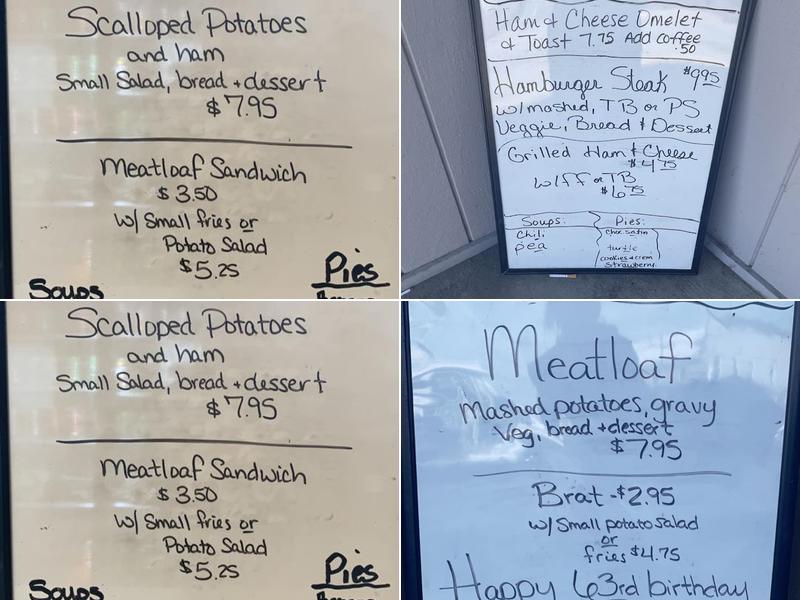 Scalloped Potatoes
and ham
Small Salad, bread + dessert
$7.95
Meatloaf Sandwich
$3.50
w/ Small fries or
Potato Salad
$5.25
Soups
Pies
Ham & Cheese Omelet
& Toast 7.75 Add coffee
.50
Hamburger Steak $9.95
w/mashed, TB or PS
Veggie, Bread & Dessert
Grilled Ham & Cheese
$4.75
w/ff or TB
$6.75
Soups: Pies:
Chili choc. satin
pea turtle
cookies + crem
strawberry
Scalloped Potatoes
and ham
Small Salad, bread + dessert
$7.95
Meatloaf Sandwich
$3.50
w/ Small fries or
Potato Salad
$5.25
Soups
Pies
Meatloaf
Mashed potatoes, gravy
Veg, bread + dessert
$7.95
Brat - $2.95
w/ Small potato salad
or
fries $4.75
Happy 63rd birthday